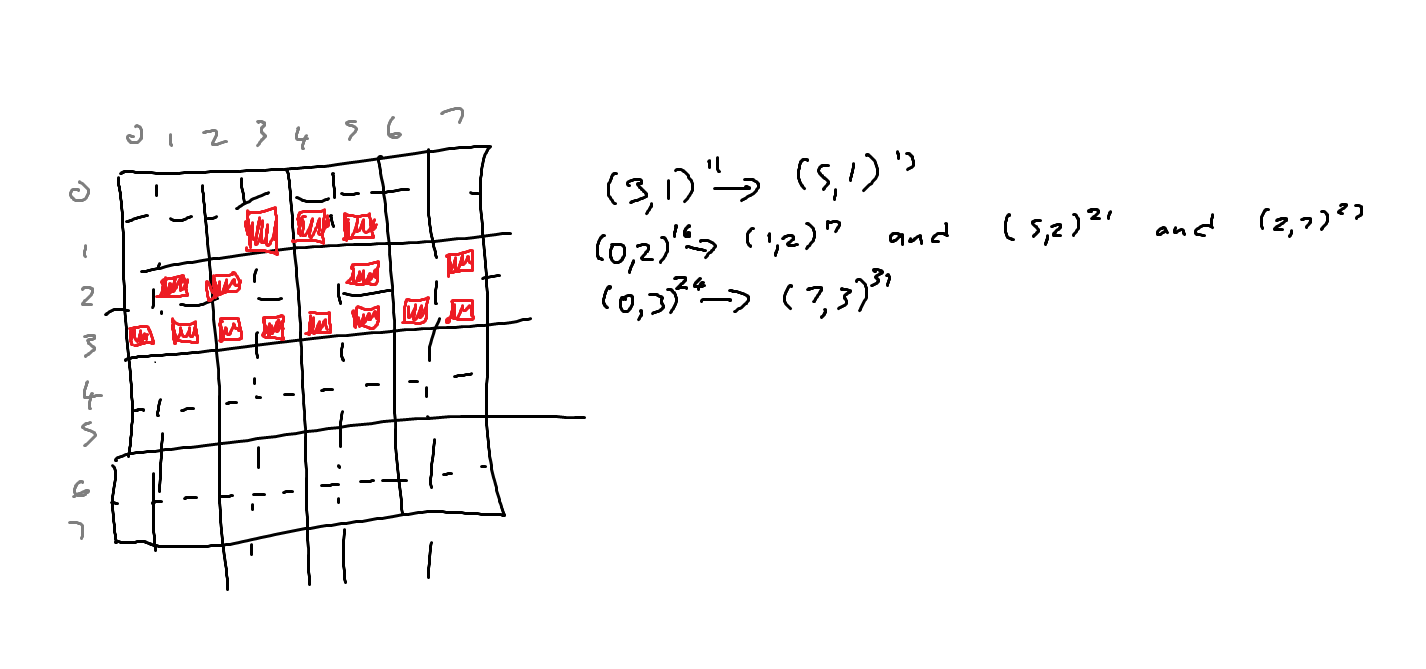 0 1 2 3 4 5 6 7
0
1
2
3
4
5
6
7
(3,1)¹¹ → (5,1)¹³
(0,2)¹⁶ → (1,2)¹⁷ and (5,2)²¹ and (2,7)²³
(0,3)²⁴ → (7,3)³¹